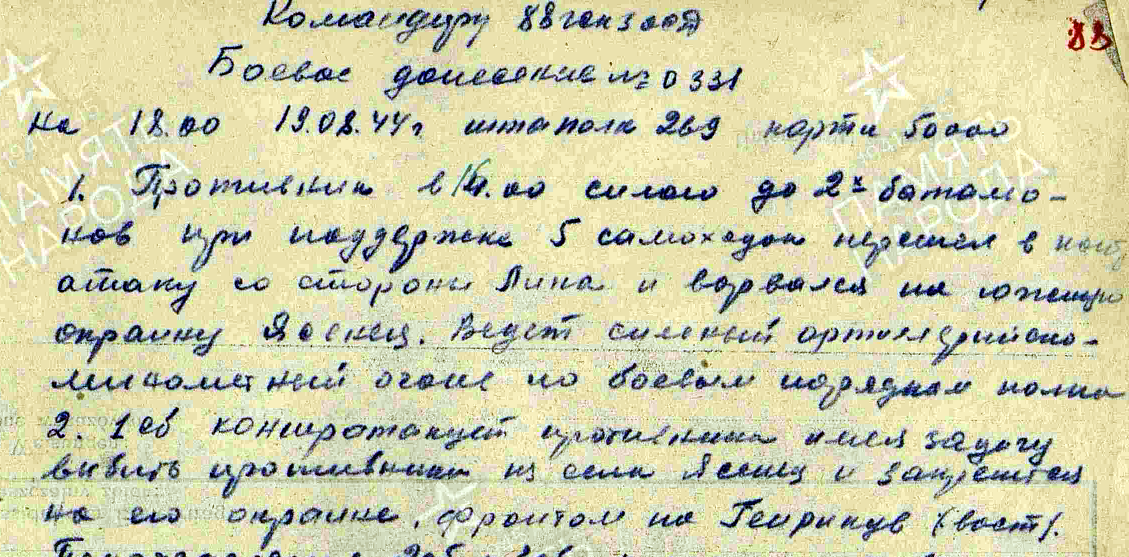 Командиру 88 гвк зсд
88
Боевое донесение № 0331
на 18.00 19.08.44 г штаполк 269 карта 50000
1. Противник в 14.00 силою до 2х батальо-
нов при поддержке 5 самоходок перешел в контр
атаку со стороны Липа и ворвался на южную
окраину Ясенец. Ведет сильный артиллерийско-
минометный огонь по боевым порядкам полка
2. 1 сб контратакует противника имея задачу
выбить противника из села Ясенец и закрепиться
на его окраине, фронтом на Генрикув (вост).
ПАМЯТЬ
НАРОДА
ПАМЯТЬ
НАРОДА